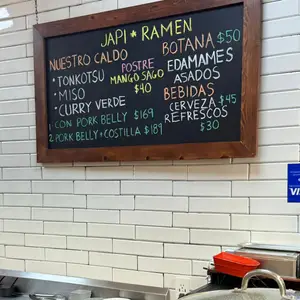 JAPI * RAMEN
NUESTRO CALDO
* TONKOTSU
* MISO
* CURRY VERDE
1 CON PORK BELLY $169
2 PORK BELLY + COSTILLA $189
POSTRE
MANGO SAGO
$40
BOTANA $50
EDAMAMES
ASADOS
BEBIDAS
CERVEZA $45
REFRESCOS
$30
VISA